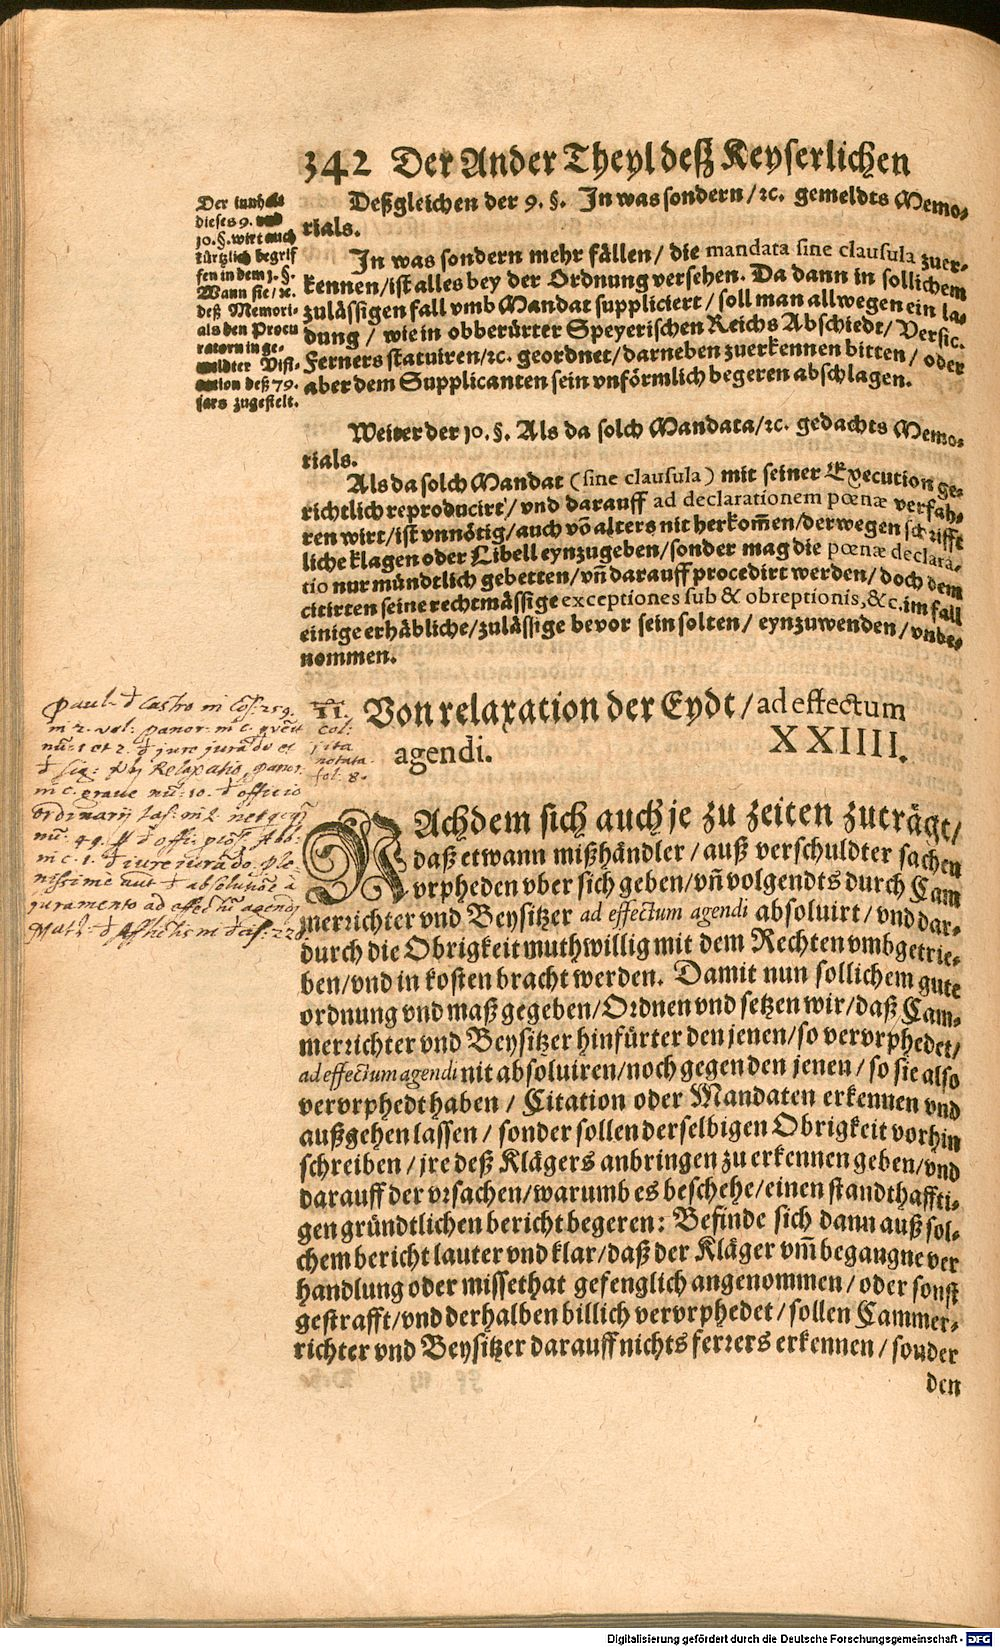 342 Der Ander Theyl deß Keyserlichen
Der innhalt
dieses 9. vnd
10. §. wirt auch
kürtzlich begrif
fen in dem 1. §.
Wann sie / ꝛc.
deß Memori-
als den Procu
ratorn in ge-
meldter Visi-
tation deß 79.
jars zugestelt.
Deßgleichen der 9. §. In was sondern / ꝛc. gemeldts Memo-
rials.
In was sondern mehr fällen / die mandata sine clausula zuer-
kennen / ist alles bey der Ordnung versehen. Da dann in sollichem
zulässigen fall vmb Mandat suppliciert / soll man allwegen ein la-
dung / wie in obberürter Speyerischen Reichs Abschiedt / Versic.
Ferners statuiren / ꝛc. geordnet / darneben zuerkennen bitten / oder
aber dem Supplicanten sein vnförmlich begeren abschlagen.
Weiter der 10. §. Als da solch Mandata / ꝛc. gedachts Memo-
rials.
Als da solch Mandat (sine clausula) mit seiner Execution ge-
richtlich reproducirt / vnd darauff ad declarationem pœnæ verfah-
ren wirt / ist vnnötig / auch võ alters nit herkom̃en / derwegen schrifft
liche klagen oder Libell eynzugeben / sonder mag die pœnæ declara-
tio nur mündtlich gebetten / vñ darauff procedirt werden / doch dem
citirten seine rechtmässige exceptiones sub & obreptionis, &c. im fall
einige erhäbliche / zulässige bevor sein solten / eynzuwenden / vnbe-
nommen.
Von relaxation der Eydt / ad effectum
agendi. XXIIII.
11.
col:
ita
notata
fol: 8.
Paul. de Castro in
nu: 1 et 2. de jure jurādo et
Relaxatio, panor:
in c. graue nu: 10. de officio
ordinarij
in c. 1. de iure jurādo. ple-
nissime
juramento ad effectū agendi
NAchdem sich auch je zu zeiten zuträgt /
daß etwann mißhändler / auß verschuldter sachen
vrpheden vber sich geben / vñ volgendts durch Cam
merrichter vnd Beysitzer ad effectum agendi absoluirt / vnd dar-
durch die Obrigkeit muthwillig mit dem Rechten vmbgetrie-
ben / vnd in kosten bracht werden. Damit nun sollichem gute
ordnung vnd maß gegeben / Ordnen vnd setzen wir / daß Cam-
merrichter vnd Beysitzer hinfürter den jenen / so vervrphedet /
ad effectum agendi nit absoluiren / noch gegen den jenen / so sie also
vervrphedt haben / Citation oder Mandaten erkennen vnd
außgehen lassen / sonder sollen derselbigen Obrigkeit vorhin
schreiben / jre deß Klägers anbringen zu erkennen geben / vnd
darauff der vrsachen / warumb es beschehe / einen standthaffti-
gen gründtlichen bericht begeren: Befinde sich dann auß sol-
chem bericht lauter vnd klar / daß der Kläger vm̃ begangne ver
handlung oder missethat gefenglich angenommen / oder sonst
gestrafft / vnd derhalben billich vervrphedet / sollen Cammer-
richter vnd Beysitzer darauff nichts ferrers erkennen / sonder
den
Digitalisierung gefördert durch die Deutsche Forschungsgemeinschaft - DFG